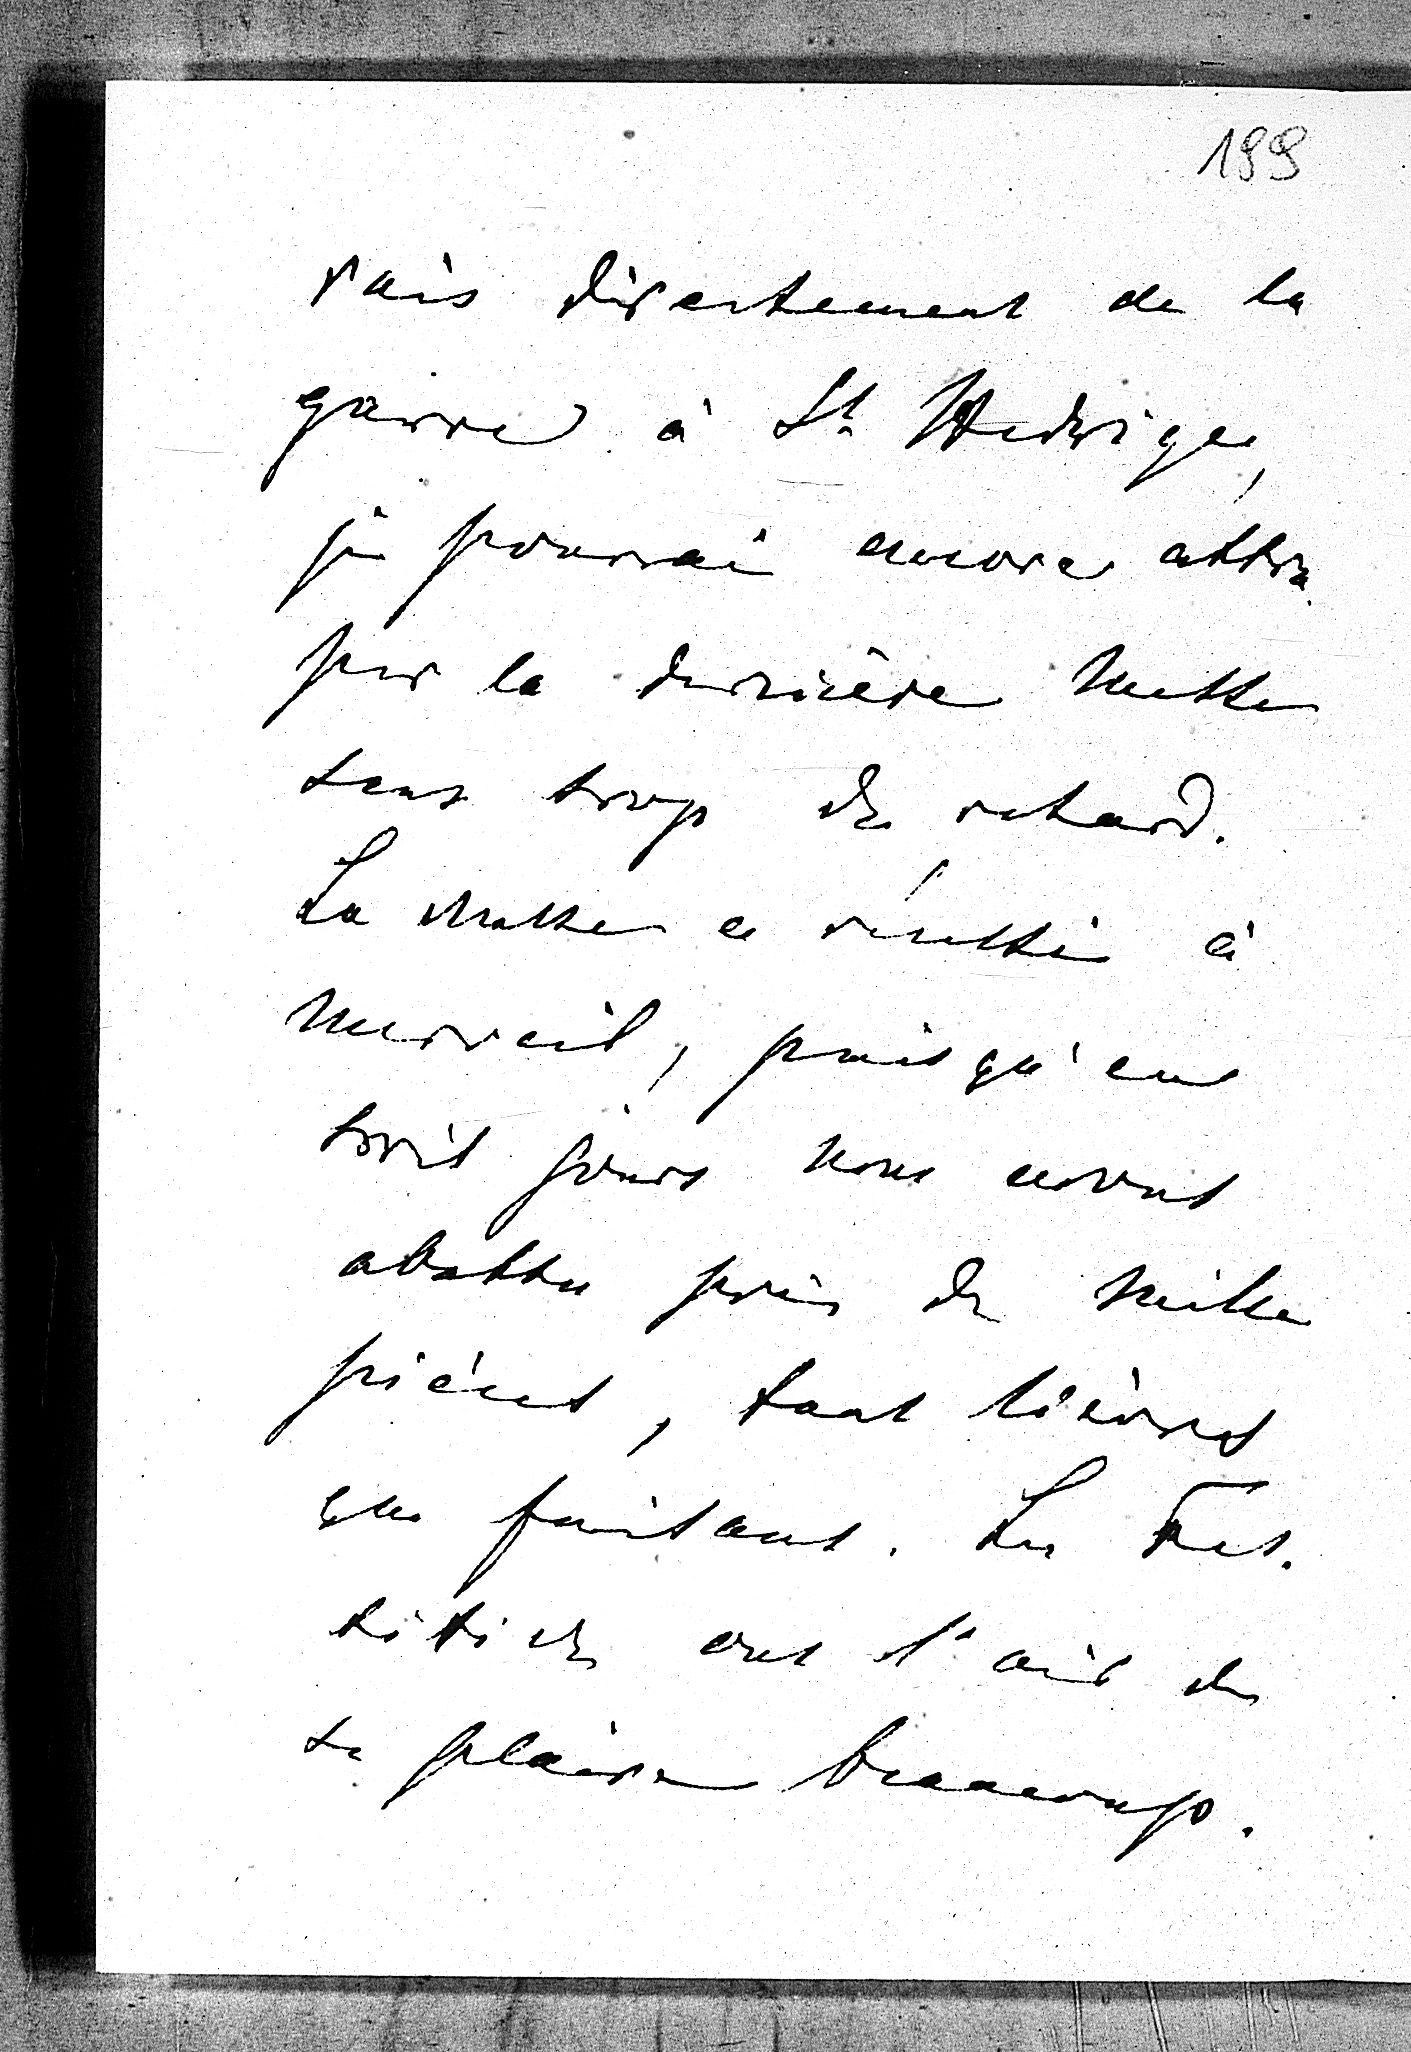 199
vais directement de la
garre à St Hedwige,
je pourrai encore attra-
per la dernière messe
sans trop de retard.
La chasse a réussi à
merveil, puisqu'en
trois jours nous avons
abattu près de mille
pièces, tant lièvres
que faisans. Les Fes-
tétics ont l'air de
se plaire beaucoup.